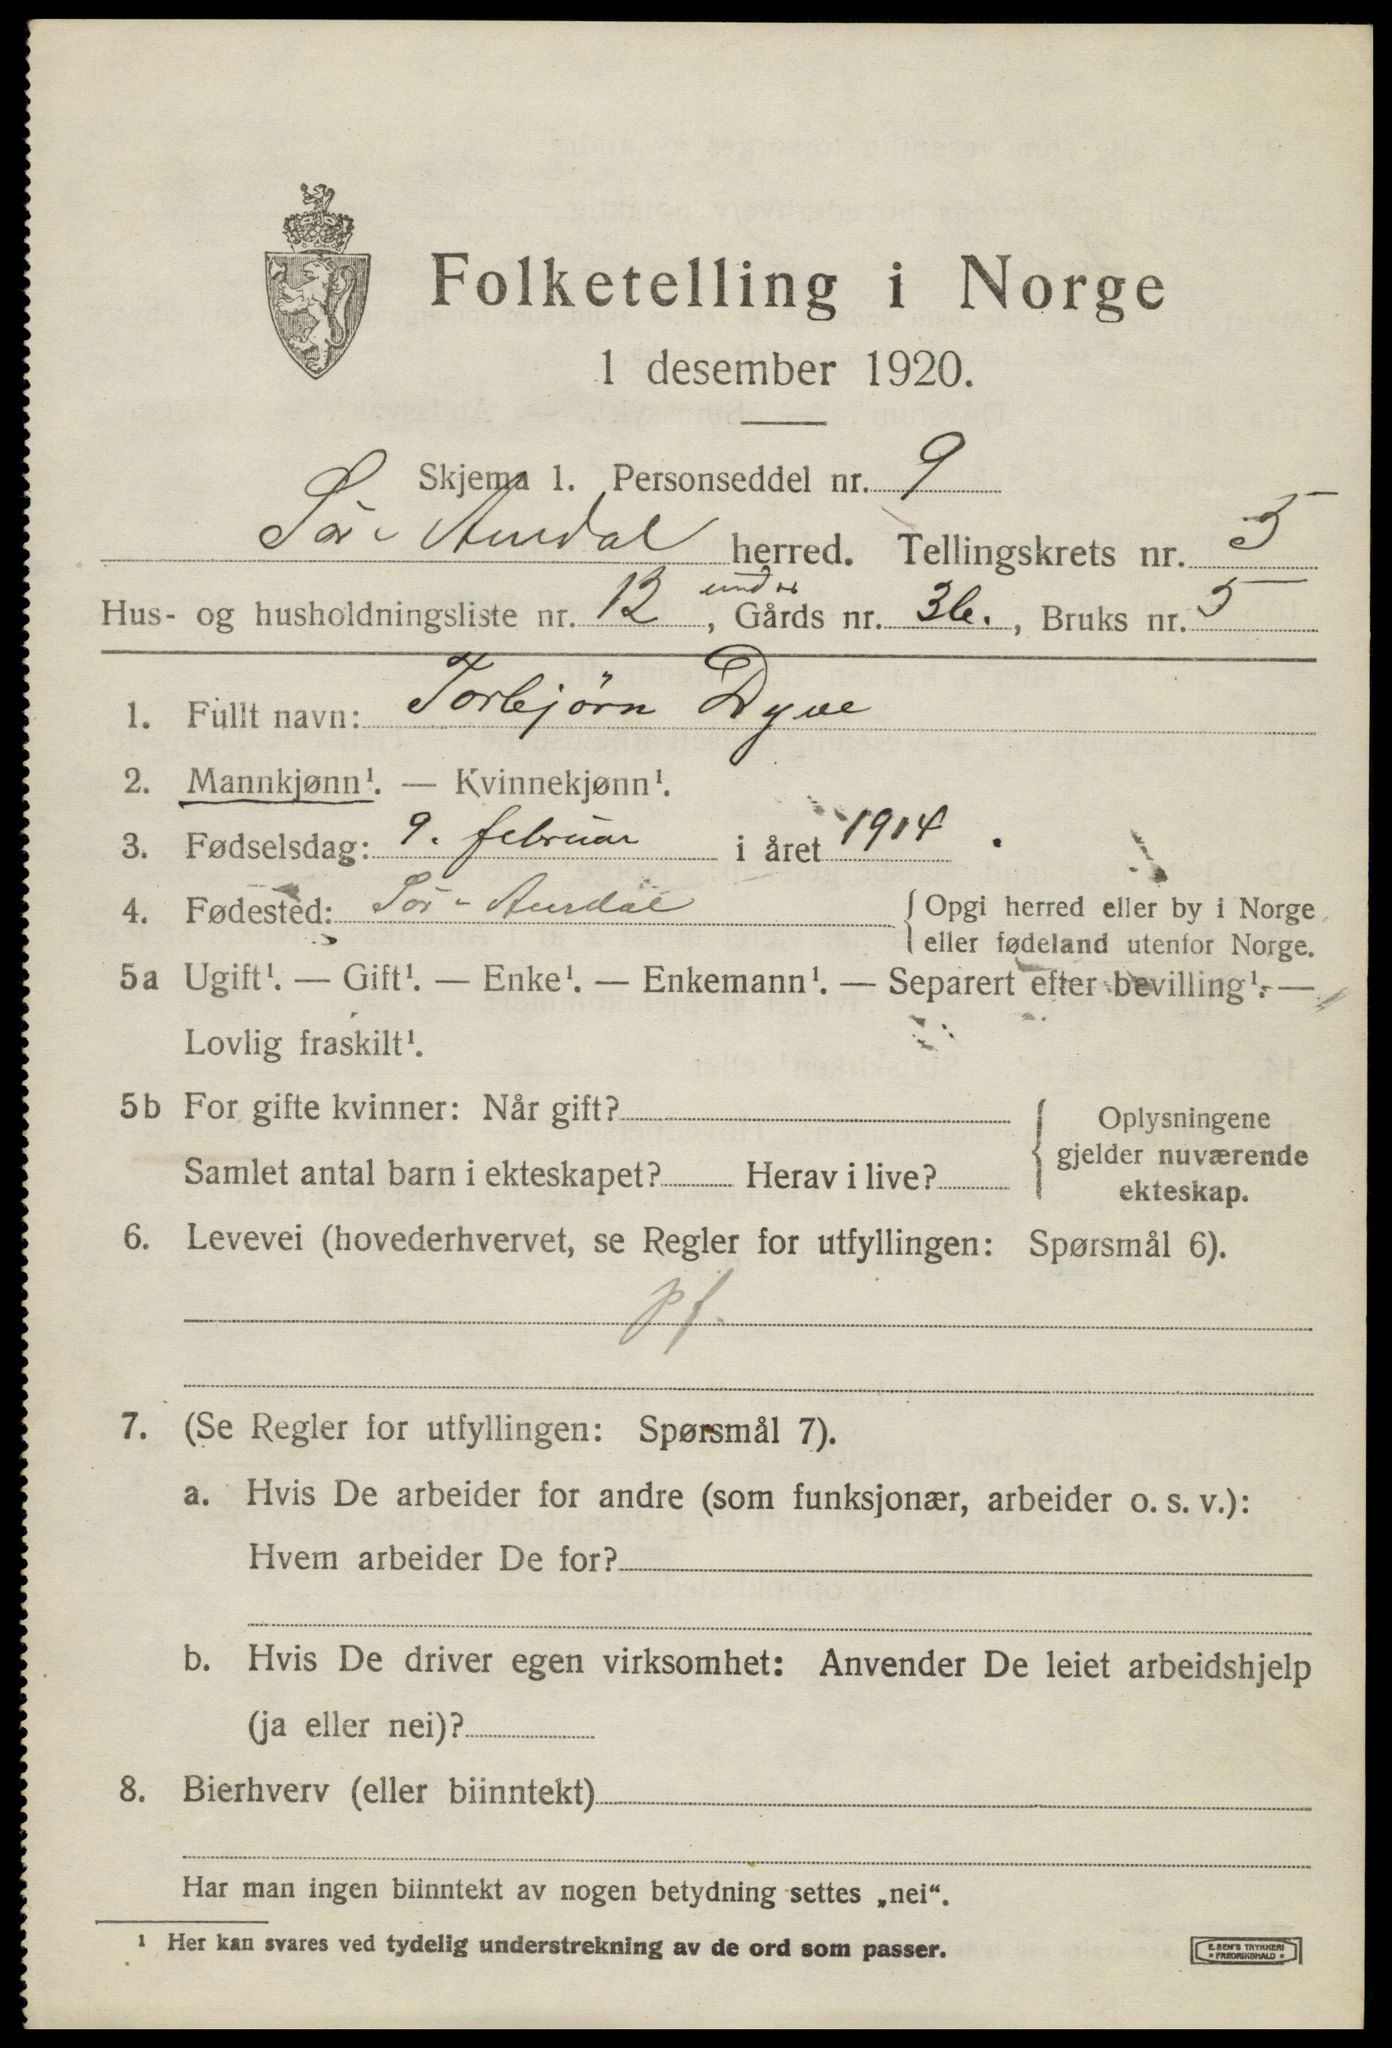 Folketelling i Norge
1 desember 1920.
Skjema 1. Personseddel nr. 9
Sør-Aurdal herred. Tellingskrets nr. 5
Hus- og husholdningsliste nr. 12, under Gårds nr. 36., Bruks nr. 5
1. Fullt navn: Torbjörn Dyve
2. Mannkjønn¹. — Kvinnekjønn¹.
3. Fødselsdag: 9. februar i året 1914.
4. Fødested: Sör-Aurdal
{ Opgi herred eller by i Norge
eller fødeland utenfor Norge.
5a Ugift¹. — Gift¹. — Enke¹. — Enkemann¹. — Separert efter bevilling¹. —
Lovlig fraskilt¹.
5b For gifte kvinner: Når gift?
Samlet antal barn i ekteskapet? Herav i live?
{ Oplysningene
gjelder nuværende
ekteskap.
6. Levevei (hovederhvervet, se Regler for utfyllingen: Spørsmål 6).
pf.
7. (Se Regler for utfyllingen: Spørsmål 7).
a. Hvis De arbeider for andre (som funksjonær, arbeider o. s. v.):
Hvem arbeider De for?
b. Hvis De driver egen virksomhet: Anvender De leiet arbeidshjelp
(ja eller nei)?
8. Bierhverv (eller biinntekt)
Har man ingen biinntekt av nogen betydning settes „nei“.
¹ Her kan svares ved tydelig understrekning av de ord som passer.
E. SEM'S TRYKKERI
• FREDRIKSHALD •